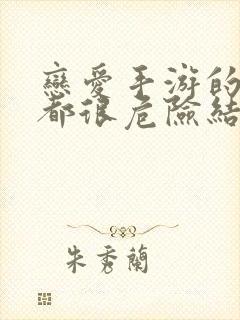 戀愛手游的
都很危險結
朱秀蘭